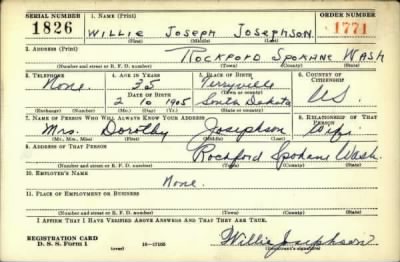 SERIAL NUMBER
1. NAME (Print)
ORDER NUMBER
1826
WILLIE JOSEPH JOSEPHSON
1771
(First) (Middle) (Last)
2. ADDRESS (Print)
ROCKFORD SPOKANE WASH
(Number and street or R. F. D. number) (Town) (County) (State)
3. TELEPHONE
4. AGE IN YEARS
5. PLACE OF BIRTH
6. COUNTRY OF CITIZENSHIP
None.
35
Perryville
DATE OF BIRTH
(Town or county)
2 10 1905
South Dakota
US
(Exchange) (No.)
(Mo.) (Day) (Yr.)
(State or country)
7. NAME OF PERSON WHO WILL ALWAYS KNOW YOUR ADDRESS
8. RELATIONSHIP OF THAT PERSON
Mrs. Dorothy Josephson Wife
(Mr., Mrs., Miss) (First) (Middle) (Last)
9. ADDRESS OF THAT PERSON
Rockford Spokane Wash.
(Number and street or R. F. D. number) (Town) (County) (State)
10. EMPLOYER'S NAME
None.
11. PLACE OF EMPLOYMENT OR BUSINESS
(Number and street or R. F. D. number) (Town) (County) (State)
I AFFIRM THAT I HAVE VERIFIED ABOVE ANSWERS AND THAT THEY ARE TRUE.
REGISTRATION CARD
D. S. S. Form 1
(over)
16-17105
Willie Josephson
(Registrant's signature)